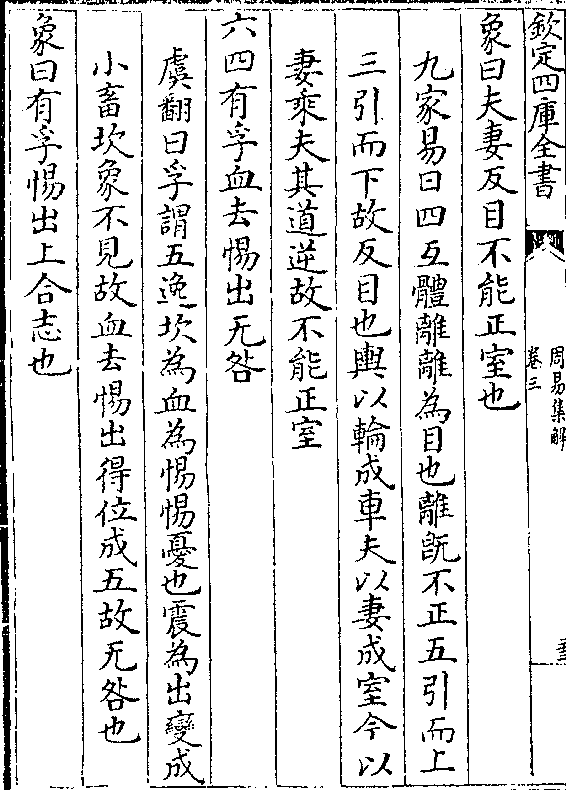 欽定四庫全書
周易集解
卷三
象曰夫妻反目不能正室也
九家易曰四互體離離為目也離既不正五引而上
三引而下故反目也輿以輪成車夫以妻成室今以
妻乘夫其道逆故不能正室
六四有孚血去惕出无咎
虞翻曰孚謂五逸坎為血為惕惕憂也震為出變成
小畜坎象不見故血去惕出得位成五故无咎也
象曰有孚惕出上合志也